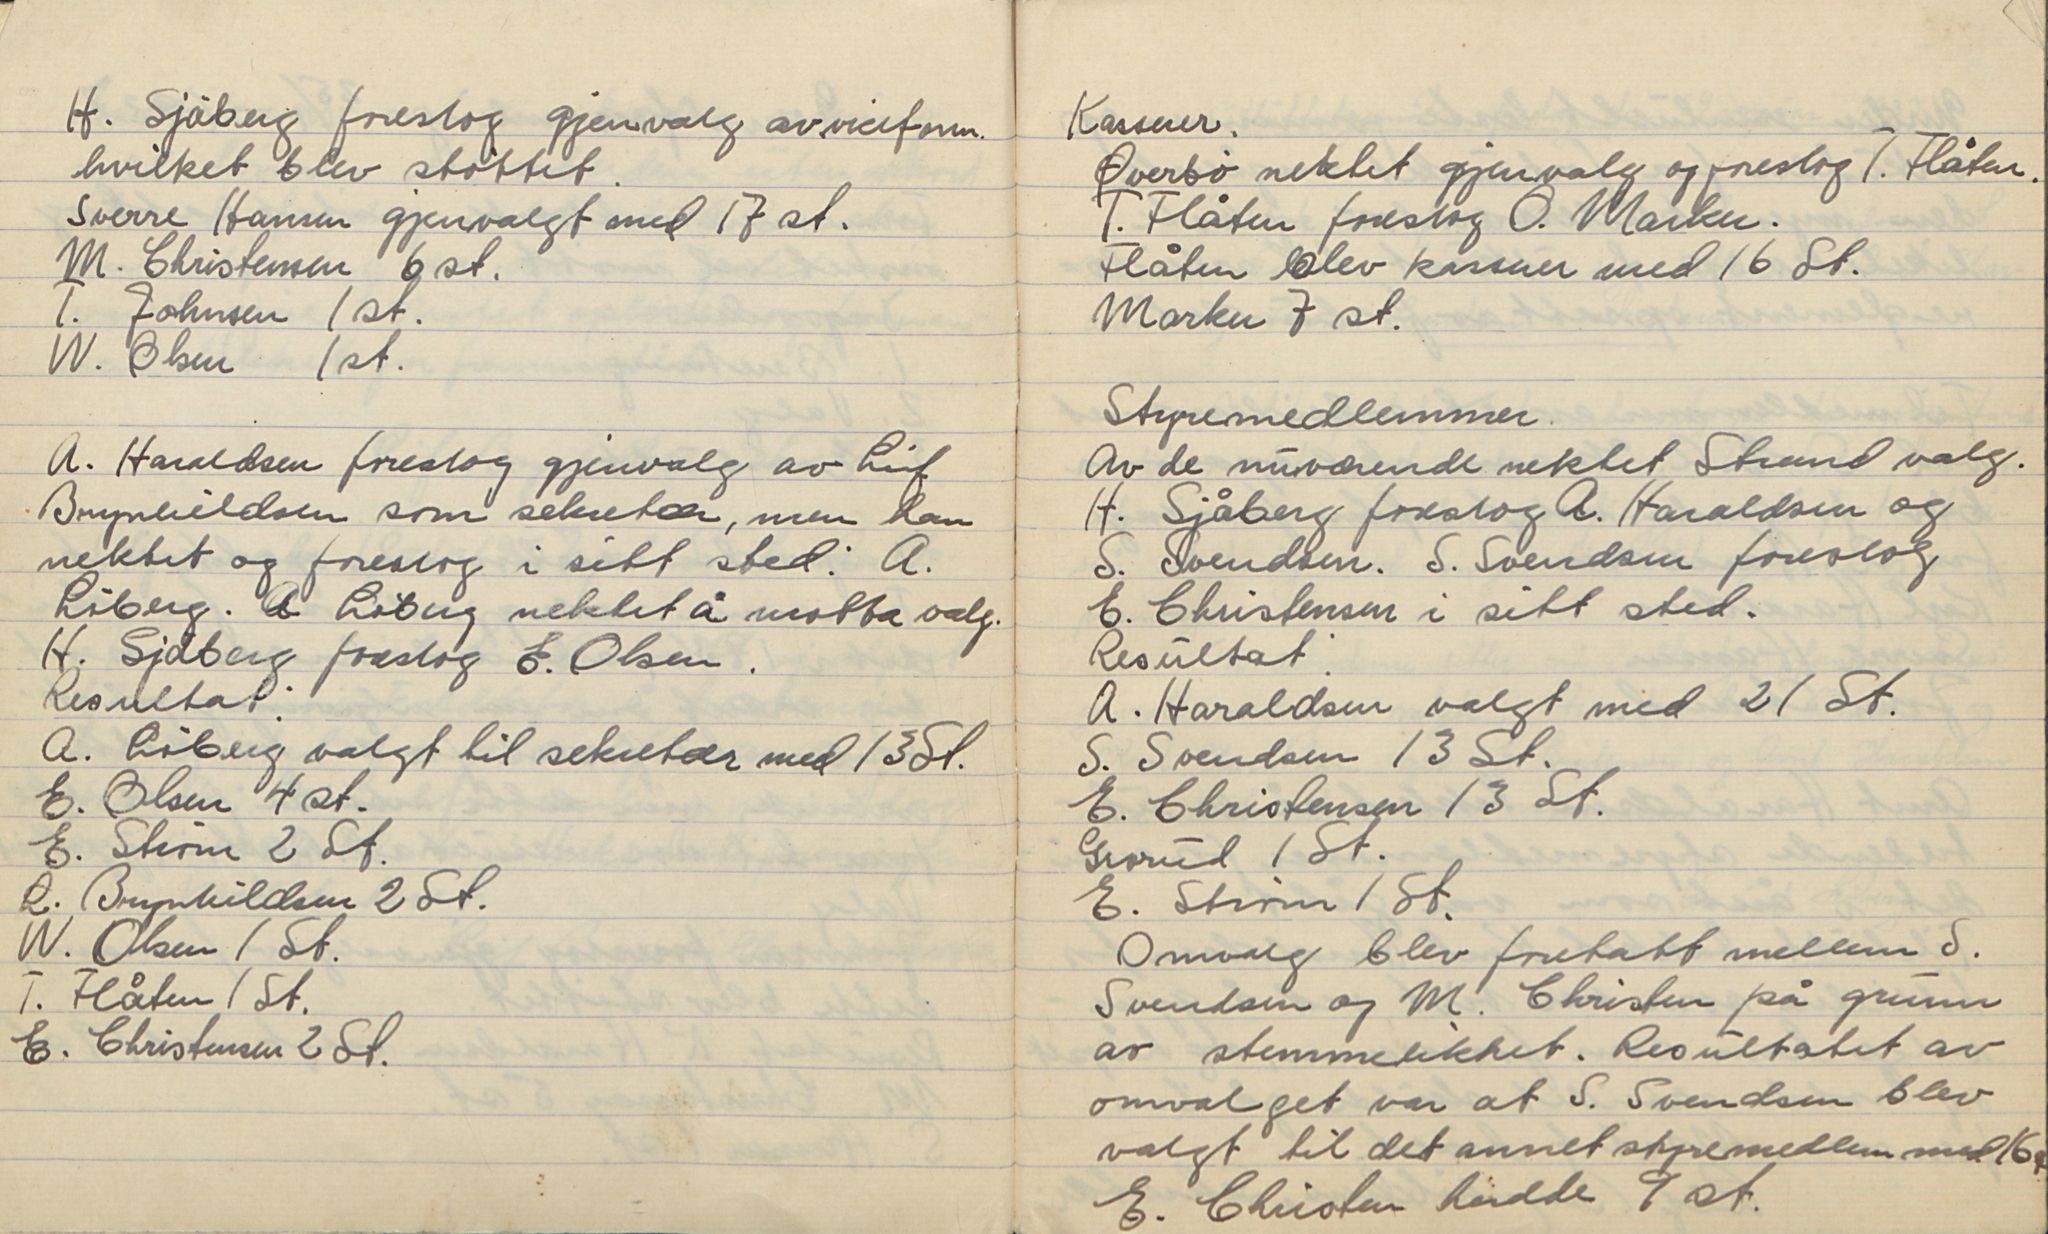 H. Sjåberg foreslog gjenvalg av viceform.
hvilket blev støttet.
Sverre Hansen gjenvalgt med 17 st.
M. Christensen 6 st.
T. Johnsen 1 st.
W. Olsen 1 st.
A. Haraldsen foreslog gjenvalg av Leif
Brynhildsen som sekretær, men han
nektet og foreslog i sitt sted: A.
Löberg. A Löberg nektet å motta valg.
H. Sjåberg foreslog E. Olsen.
Resultat:
A. Löberg valgt til sekretær med 13 St.
E. Olsen 4 st.
E. Ström 2 St.
L. Brynhildsen 2 St.
W. Olsen 1 St.
T. Flåten 1 St.
E. Christensen 2 St.
Kasserer.
Øverbö nektet gjenvalg og foreslog T. Flåten.
T. Flåten foreslog O. Marker.
Flåten blev kasserer med 16 St.
Marker 7 st.
Styremedlemmer.
Av de nuværende nektet Strand valg.
H. Sjåberg foreslog A. Haraldsen og
S. Svendsen. S. Svendsen foreslog
E. Christensen i sitt sted.
Resultat:
A. Haraldsen valgt med 21 St.
S. Svendsen 13 St.
E. Christensen 13 St.
Grorud 1 St.
E. Ström 1 St.
Omvalg blev foretatt mellem S.
Svendsen og M. Christen på grunn
av stemmelikhet. Resultatet av
omvalget var at S. Svendsen blev
valgt til det annet styremedlem med 16 st
E. Christen hadde 9 st.